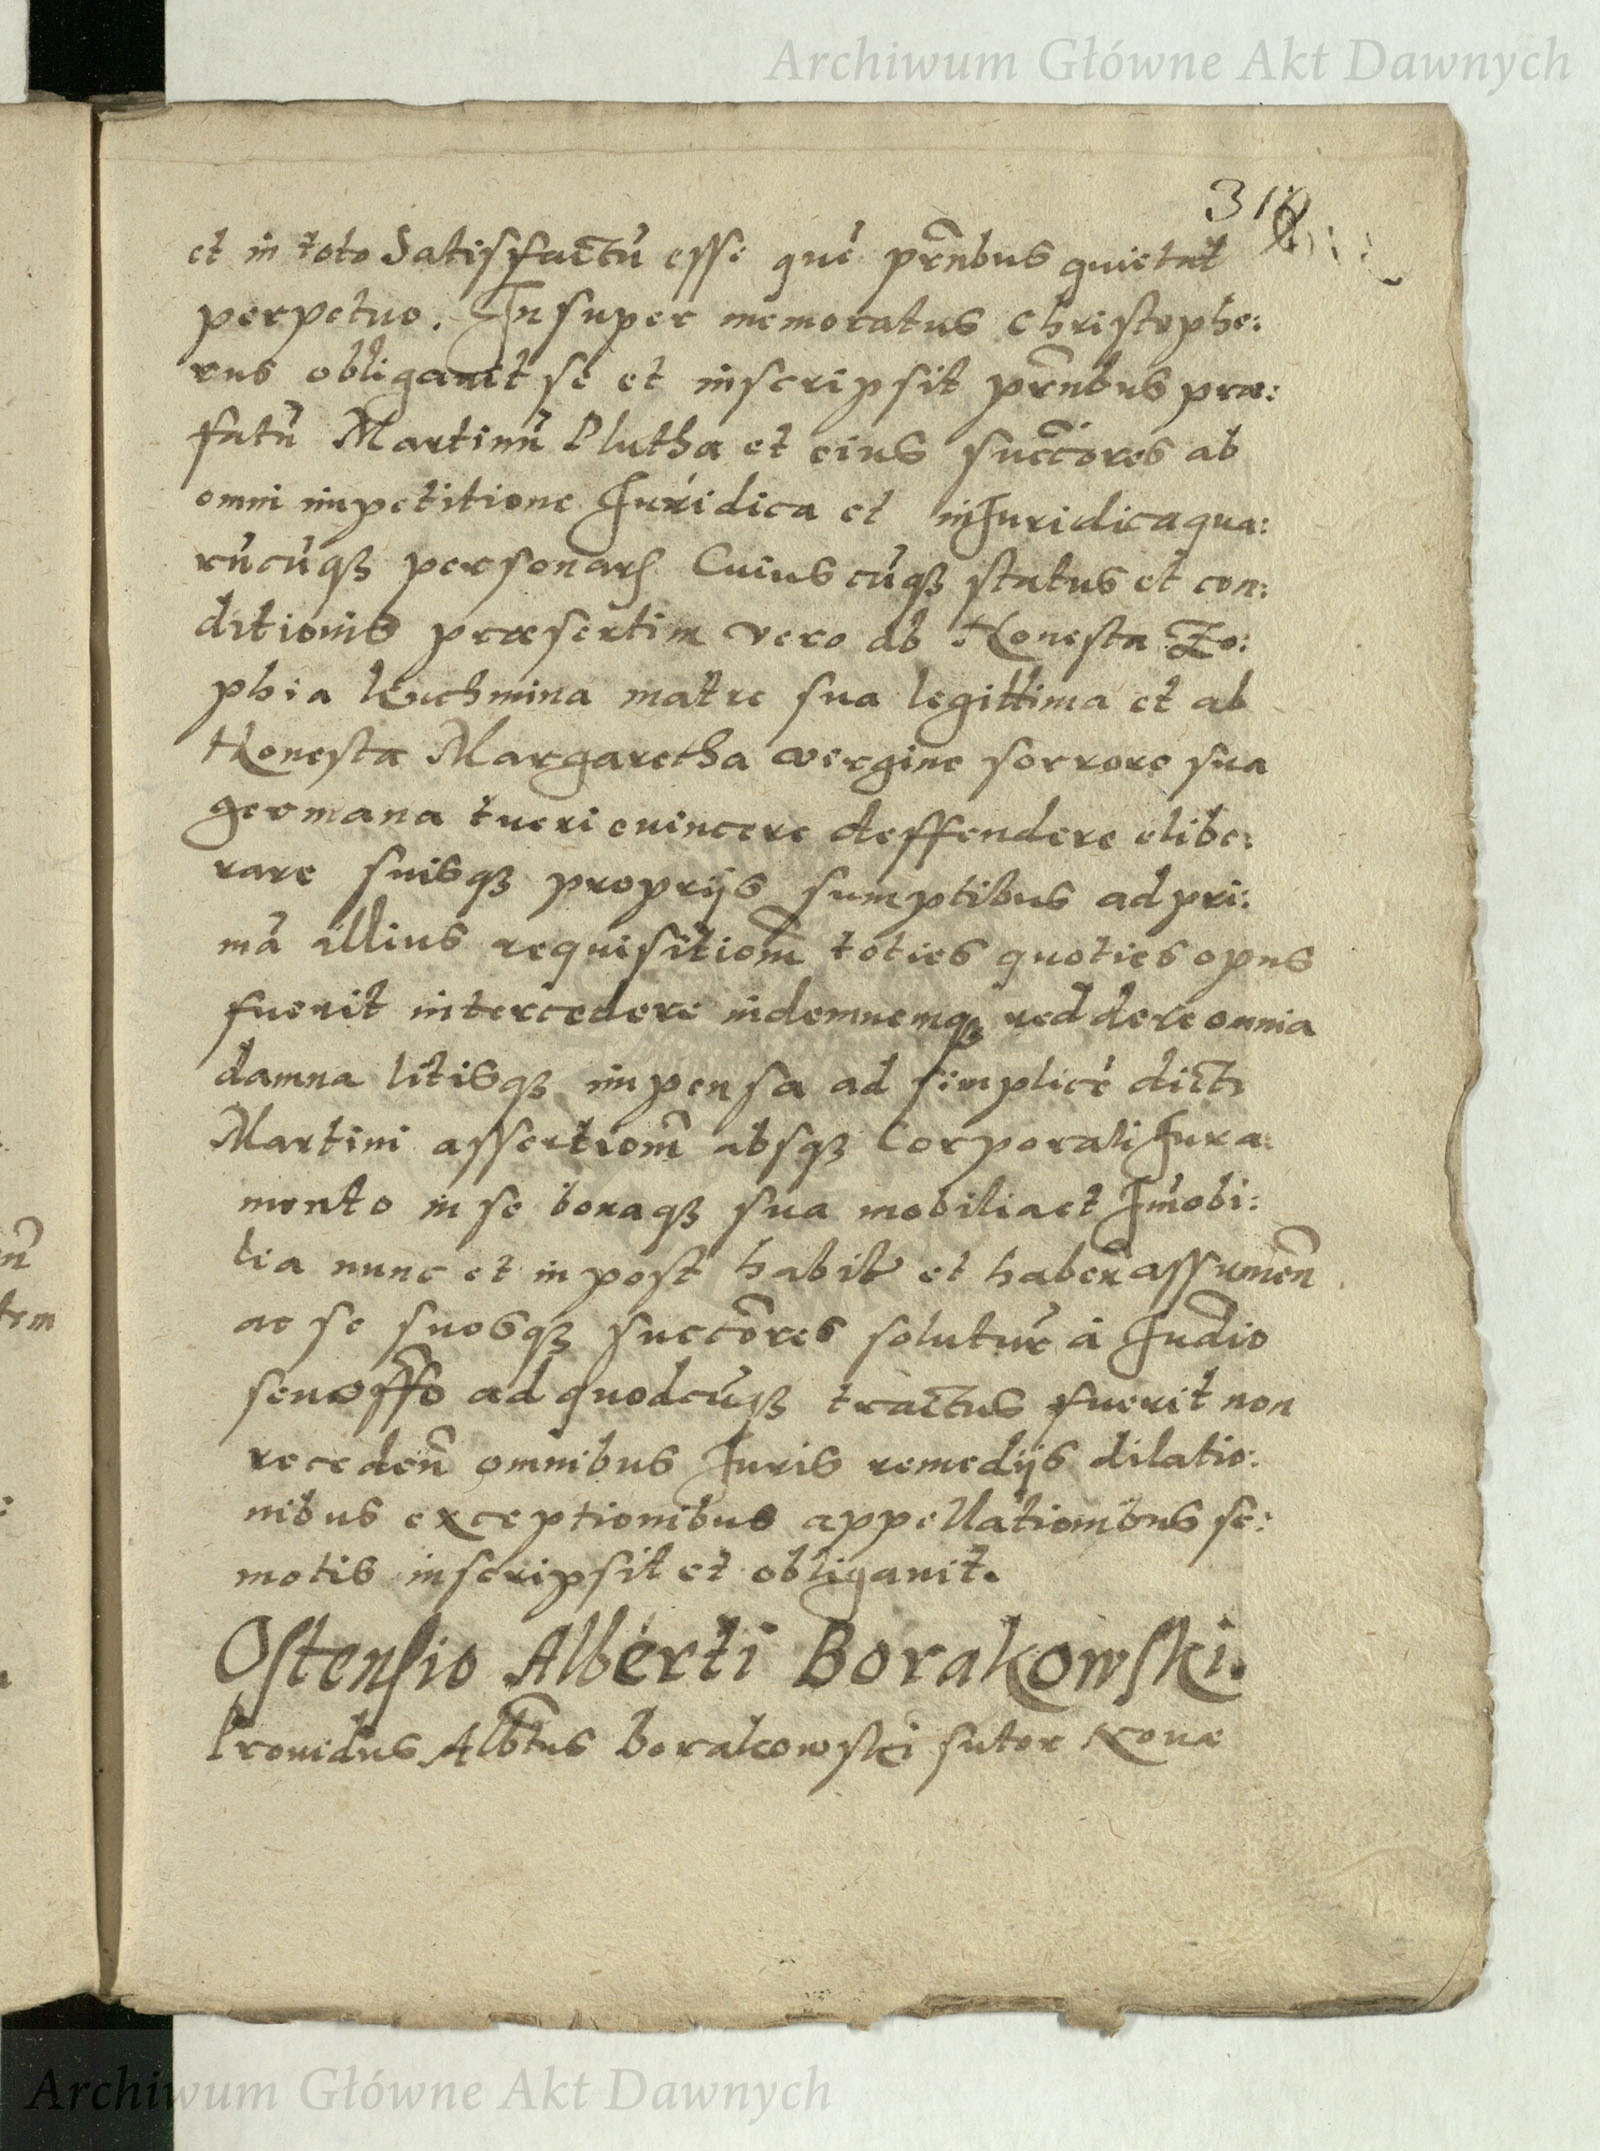 Archiwum Główne Akt Dawnych
31
et in toto Satisfactū esse quē prn̄bus quietat
perpetuo. Insuper memoratus Christophe:
rus obligauit se et inscripsit prn̄bus prae:
fatū Martinū Plutha et eius succ̄ores ab
omni impetitione Iuridica et inIuridica qua:
rūcūqȝ personarꝝ Cuiuscūqȝ status et con:
ditionis praesertim vero ab Honesta Zo:
phia matre sua legittima et ab
Honesta Margaretha vergine sorrore sua
germana tueri euincere deffendere elibe:
rare suisqȝ proprijs sumptibus ad pri:
mā illius requisitiom̄ toties quoties opus
fuerit intercedere indemnemqȝ reddere omnia
damna litisqȝ impensa ad simplicē dicti
Martini assertiom̄ absqȝ Corporali Iura:
mento in se bonaqȝ sua mobilia et Im̄obi:
lia nunc et in post habit et haben̄ assumen̄
ac se suosqȝ succ̄ores solutur̄ à Iud̄io
seu off̄o ad quodcūqȝ tractus fuerit non
receden̄ omnibus Iuris remedijs dilatio:
nibus exceptionibus appellationibus se:
motis inscripsit et obligauit.
Ostensio Alberti Borakowski.
Prouidus Alb̄tus Borakowski sutor
Archiwum Główne Akt Dawnych